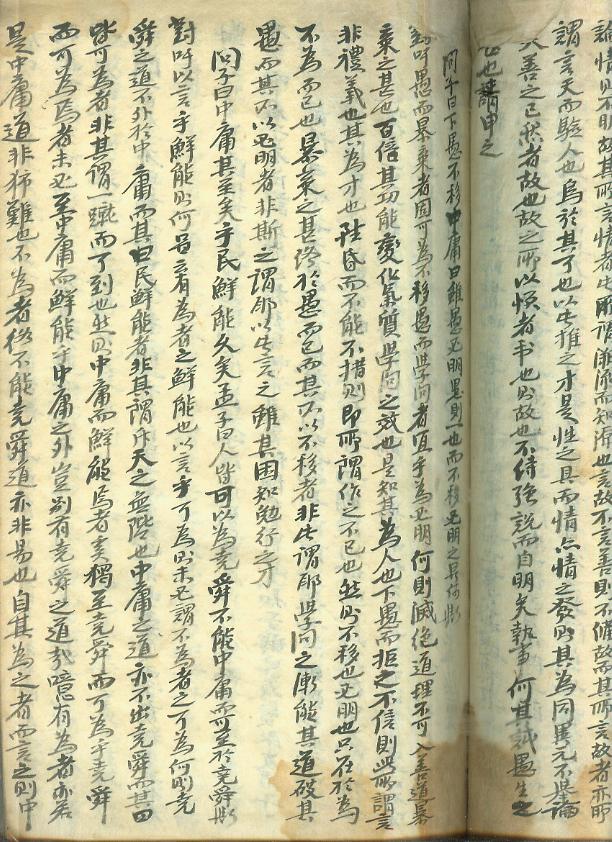 謂言天而驗人也烏於其可也以此推之才是性之具而情亦情之發則其為同異元不畢論
天善之已然者故也故之所以恨者利也則故也不待強說而自明矣執事何其試愚生之
也請申之
問子曰下愚不移中庸曰雖愚必明愚則一也而不移必明之異何歟
對吁愚而暴棄者固可為不移愚而學問者宜乎為必明何則滅絕道理不可入善道暴
棄之甚也百倍其功能變化氣質學問之效也是知其為人也下愚而拒之不信則此所謂言
非禮義也其為才也陛昏而不能不措則即所謂作之不已也然則不移也必明也只在於為
不為而已也暴棄之甚終於愚而已而其所以不移者非此謂耶學問之漸能其道破其
愚而其所以必明者非斯之謂耶以此言之雖其困知勉行之才
問子曰中庸其至矣乎民鮮能久矣孟子曰人皆可以為堯舜不能中庸而可至於堯舜歟
對吁以言乎鮮能則何 有為者之鮮能也以言乎可為則未必謂不為者之可為何則堯
舜之道不外於中庸而其曰民鮮能者非其謂 天之無階也中庸之道亦不出堯舜而其曰
皆可為者非其謂一蹴而了到也然則中庸而鮮能焉者奚獨至堯舜而可為乎堯舜
而可為焉者未必至中庸而鮮能乎中庸之外豈別有堯舜之道哉噫有為者亦若
是中庸道非難也不為者終不能堯舜道亦非易也自其為之者而言之則中